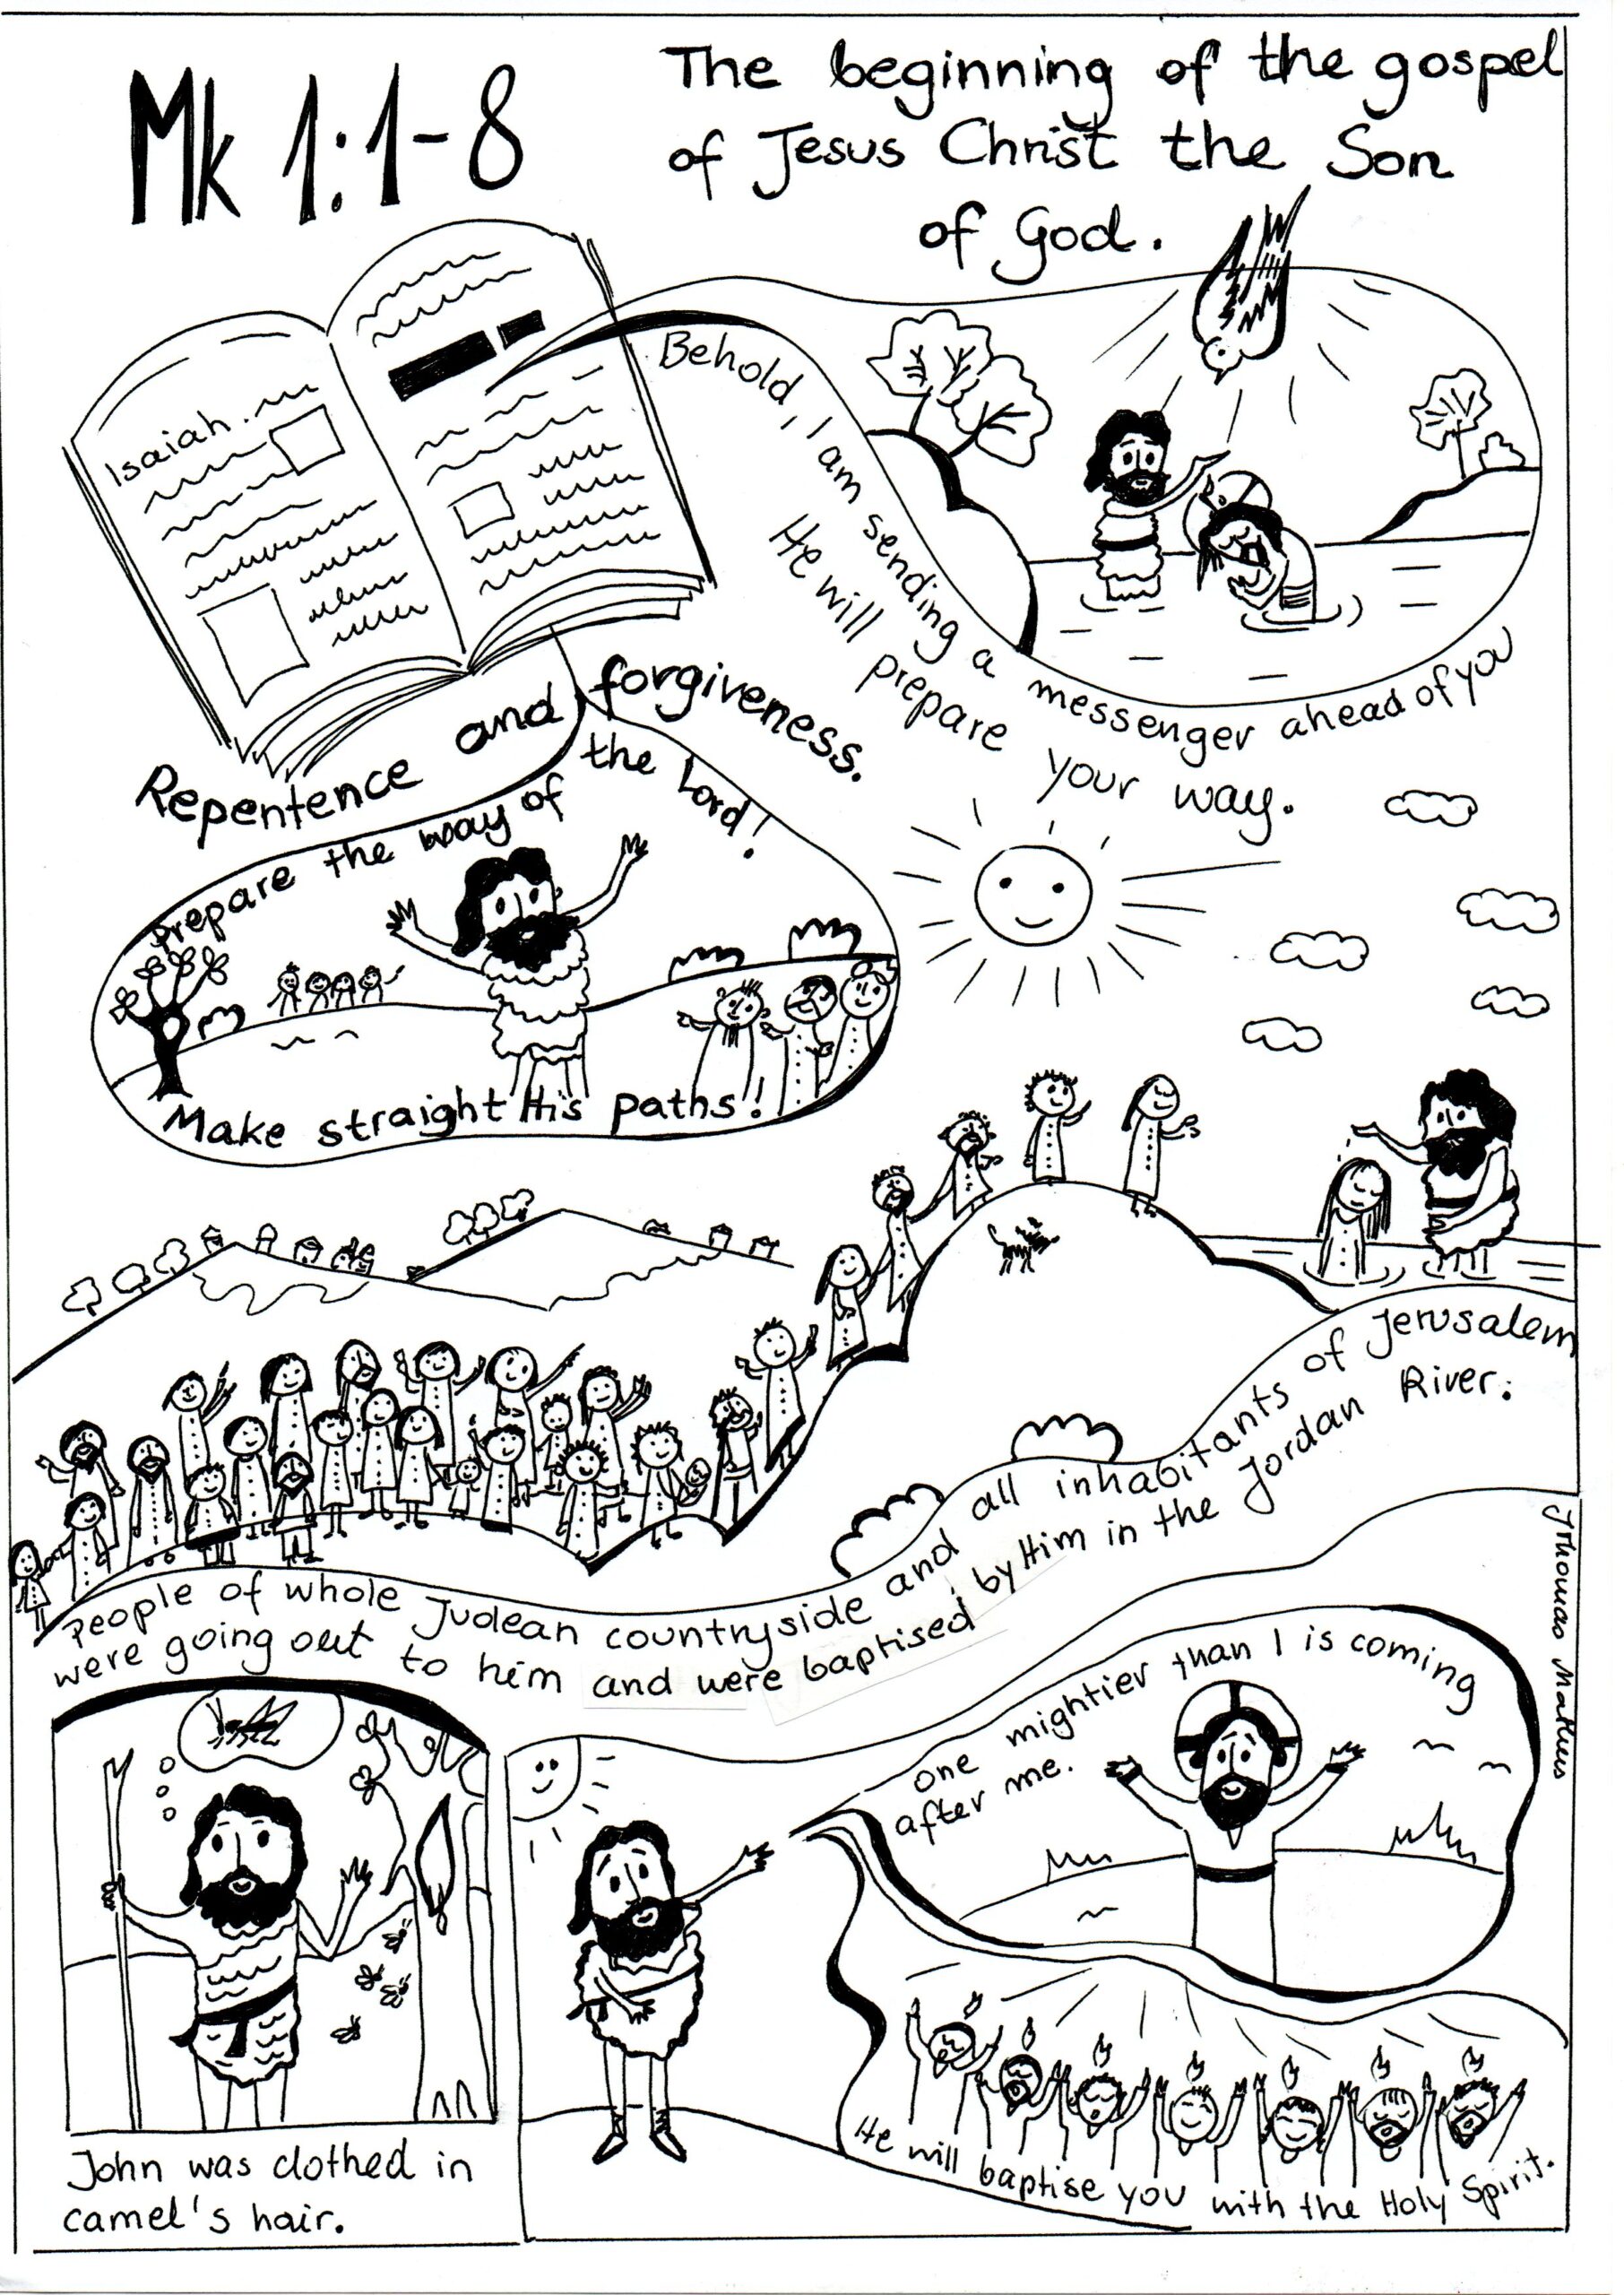 Mk 1:1-8
The beginning of the gospel
of Jesus Christ the Son
of God.
Isaiah.
Behold, I am sending a messenger ahead of you
He will prepare your way.
Repentence and forgiveness.
Prepare the way of the Lord!
Make straight His paths!
People of whole Judean countryside and all inhabitants of Jerusalem
were going out to him and were baptised by Him in the Jordan River.
John was clothed in
camel's hair.
one mightier than I is coming
after me.
He will baptise you with the Holy Spirit.